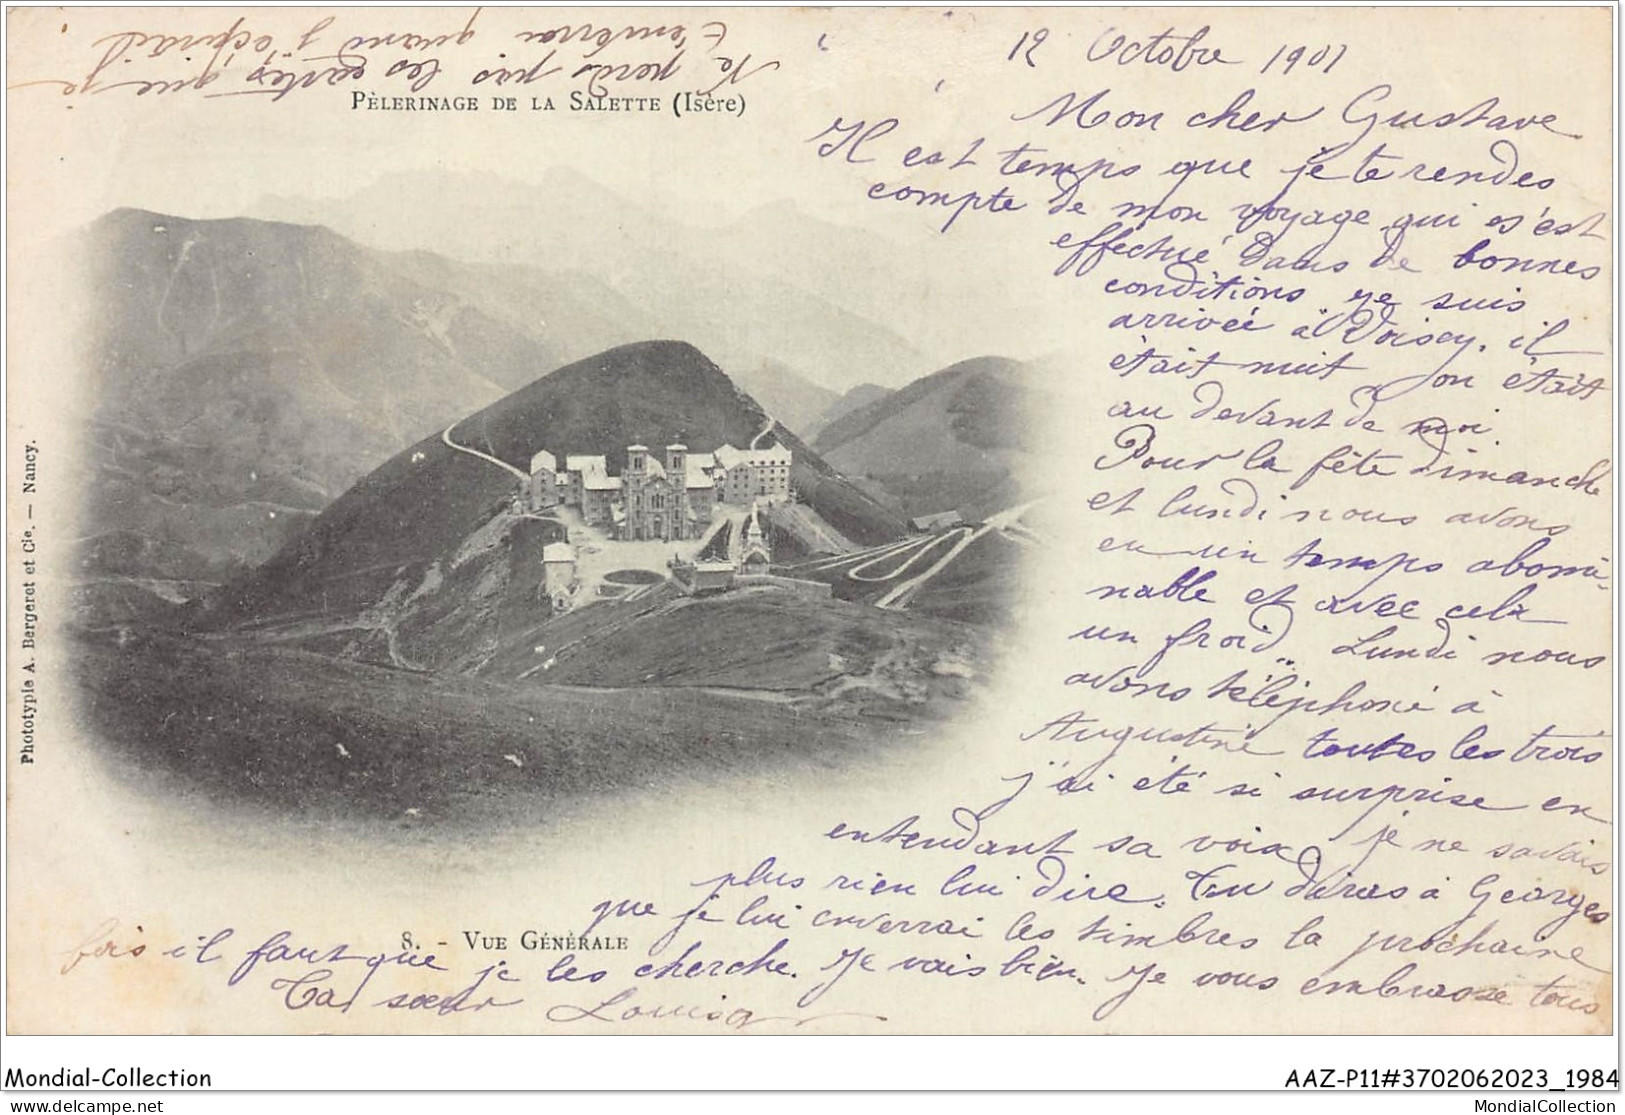 Ne perds pas les cartes que je
t'enverrai quand j'écrirai
PÈLERINAGE DE LA SALETTE (Isère)
12 Octobre 1901
Mon cher Gustave
Il est temps que je te rendes
compte de mon voyage qui s'est
effectué dans de bonnes
conditions je suis
arrivée à Voisey. il
était nuit on était
au devant de moi.
Pour la fête dimanche
et lundi nous avons
eu un temps abomi-
nable et avec cela
un froid. Lundi nous
avons téléphoné à
Augustine toutes les trois
j'ai été si surprise en
entendant sa voix, je ne savais
plus rien lui dire. Tu diras à Georges
que je lui enverrai les timbres la prochaine
fois il faut que je les cherche. Je vais bien. Je vous embrasse tous
Ta sœur Louisa
8. - VUE GÉNÉRALE
Phototypie A. Bergeret et Cie. — Nancy.
Mondial-Collection
AAZ-P11#3702062023_1984
fr.delcampe.net
MondialCollection